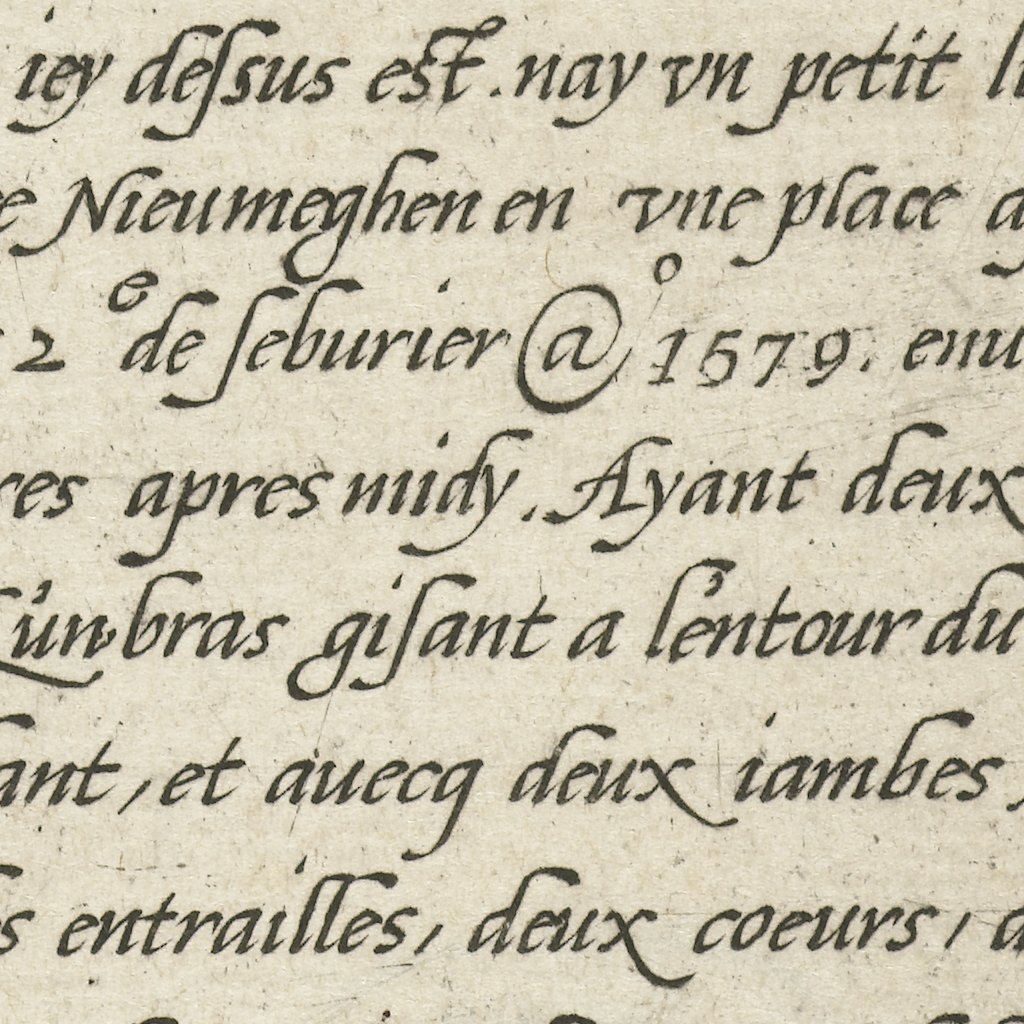 iey deſsus est. nay vn petit li
e Nieumeghen en vne place a
2ᵉ de feburier @º 1579. enu
res apres midy. Ayant deux
L'un bras giſant a l'entour du
ant, et auecq deux iambes,
s entrailles, deux coeurs, d